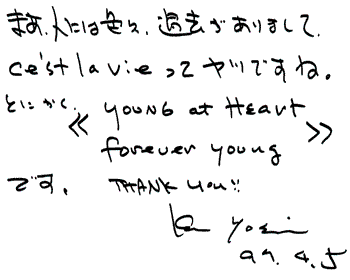 ます。人には色々、過去がありまして、
ce'st la vie ってヤツですね。
とにかく、
≪ YOUNG at Heart
forever young ≫
です。 THANK YOU!!
Ken Yossi
99. 4. 5